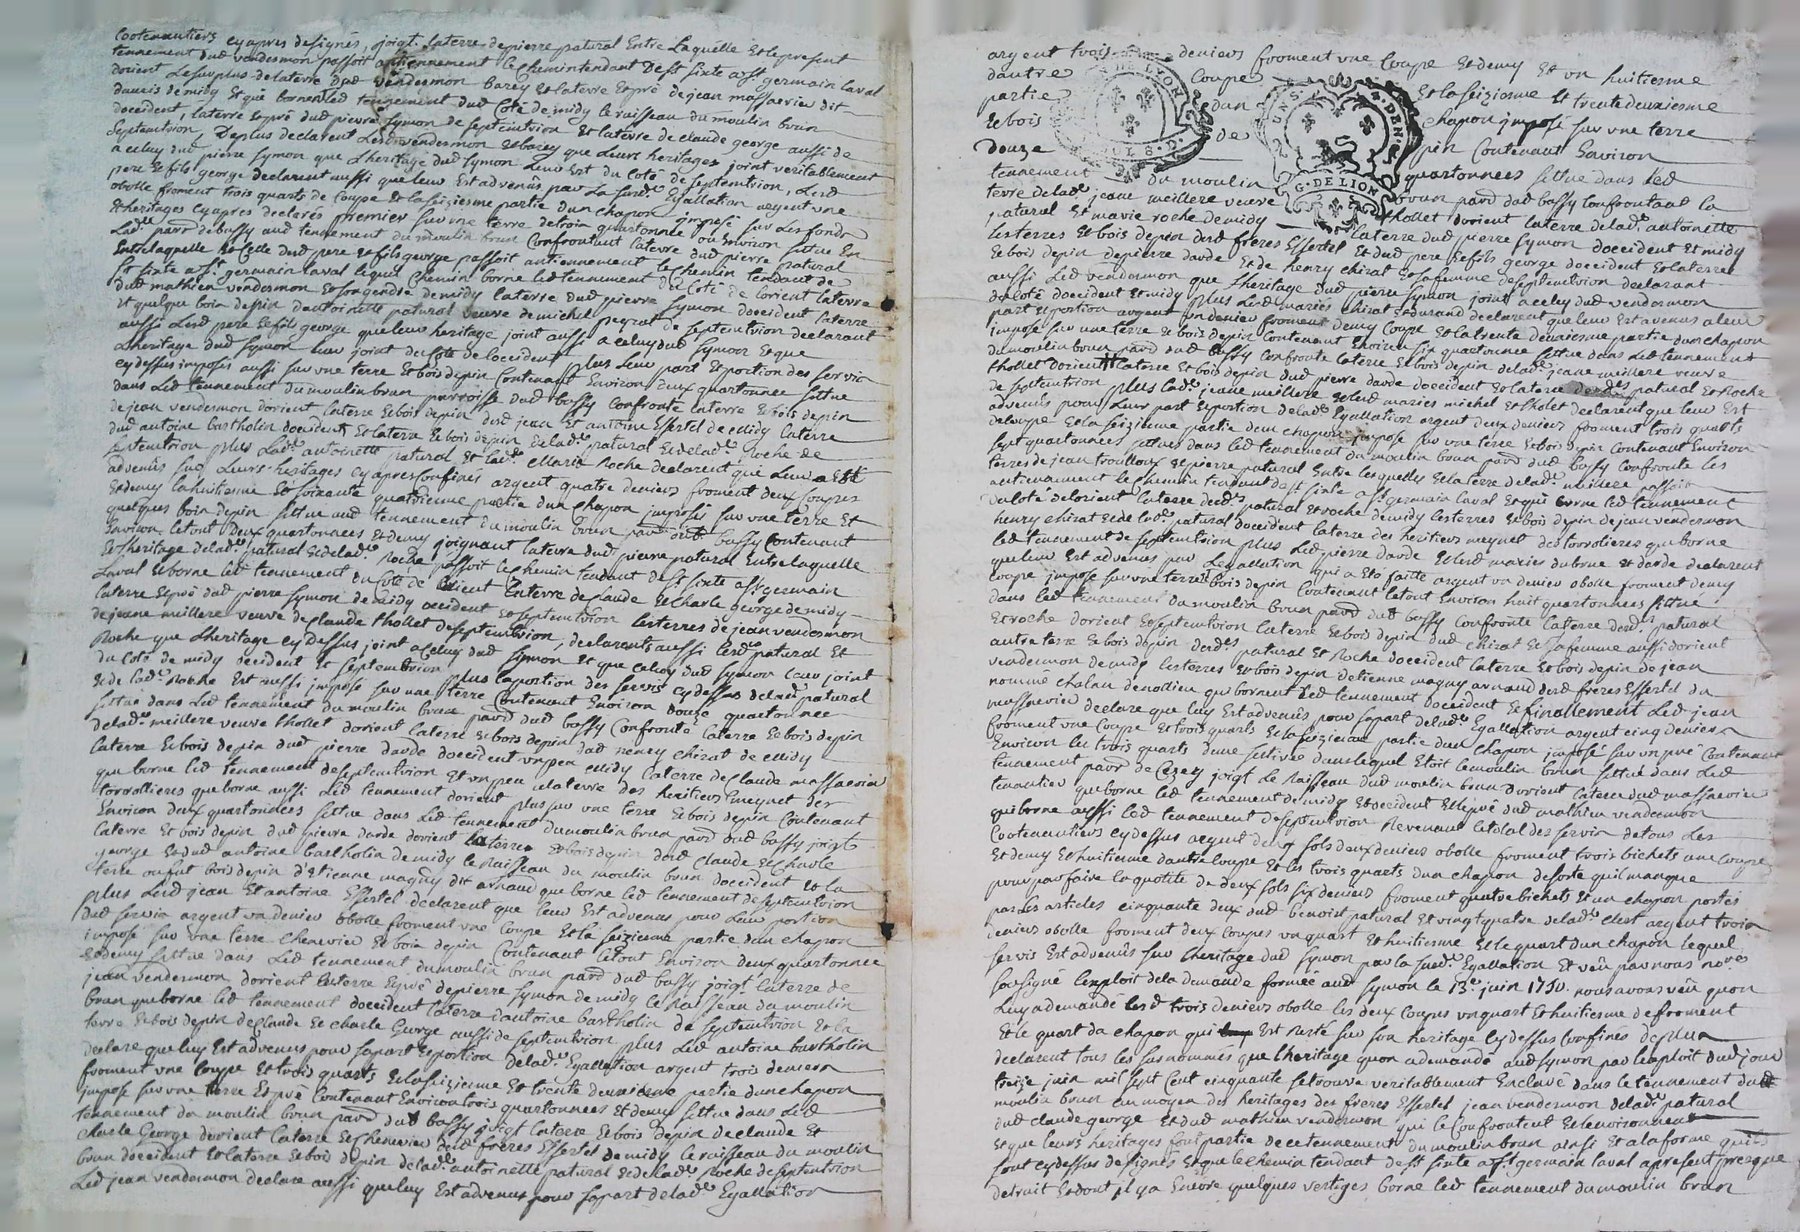 Cotenantiers cyapres designés, joigt. laterre depierre natural Entre Laquelle Et lepresent
tennement dud vendesmon passoit antiennement le chemin tendant De st sixte a st germain laval
dorient Lesurplus delaterre dud vendesmon barey Et laterre et pré de jean massacrier dit
damis demidy Et qui bornent led tennement dud Coté demidy le ruisseau du moulin brun
doccident, laterre Et pré dud pierre symon de septemtrion Et laterre de claude george aussi de
septemtrion, Deplus declarent Lesd vendesmon Et barey que Leurs heritages joint veritablement
a celuy dud pierre symon que Lheritage dud symon Leur Est du Coté de septemtrion, Lesd
pere Et fils george declarent aussi que leur Est advenus par La susd.e Egallation argent une
obolle froment trois quarts de Coupe Et la seizieme partie dun chapon imposé sur Les fonds
Et heritages cyapres declarés premier sur une terre detrois quartonnée ou Environ sittue En
Lad.e parr debussy aud tennement du moulin brun Confrontant laterre dud pierre natural
Entre laquelle Et Celle dud pere Et fils george passoit antiennement le chemin tendant de
st sixte a st. germain laval lequel chemin borne led tennement du Coté de lorient laterre
dud mathieu vendesmon Et son gendre demidy laterre dud pierre symon doccident laterre
Et quelque bois depin dantoinette natural veuve de michel peyrat de septemtrion declarant
aussi Lesd pere Et fils george que leur heritage joint aussi a celuy dud symon Et que
Lheritage dud symon leur joint du Coté de loccident plus leur part Et portion des servis
cydessus imposés aussi sur une terre Et bois depin Contenant Environ deux quartonnée sittue
dans Led tennement du moulin brun parroisse dud bussy Confronte laterre Et bois depin
de jean vendesmon dorient laterre Et bois depin desd jean Et antoine Essertel de midy laterre
dud antoine bartholin doccident Et laterre Et bois depin de lad.e natural Et de lad.e Roche de
septemtrion plus Lad.e antoinette natural Et lad.e Marie Roche declarent que leur a Esté
advenus sur Leurs heritages cyapres Confines argent quatre deniers froment deux Coupes
Et demy lahuitiesme Et soixante quatriesme partie dun chapon imposés sur une terre Et
quelques bois depin sittue aud tennement du moulin brun parr dud bussy Contenant
Environ letout Deux quartonnées Et demy joignant laterre dud pierre natural Entre laquelle
Et lheritage delad.e natural Et de lad.e Roche passoit le chemin tendant de st sixte a st. germain
Laval Et borne led tennement du Coté de lorient Enterre de claude Et charle george de midy
laterre Et pré dud pierre symon de midy occident Et septemtrion lesterres de jean vendesmon
de jeanne meillere veuve de claude thollet de septemtrion, declarents aussi Lesd.es natural Et
Roche que Lheritage cydessus joint a celuy dud symon Et que celuy dud symon leur joint
du Coté de midy occident Et septemtrion plus laportion des servis cydessus delad.e natural
Et de lad.e Roche Est aussi imposé sur une terre Contenant Environ douze quartonnée
sittue dans Led tennement du moulin brun parr dud bussy Confronte laterre Et bois depin
delad.e meillere veuve thollet dorient laterre Et bois depin dud henry chirat de midy
laterre Et bois depin dud pierre darde doccident un peu midy laterre de claude massacrier
qui borne led tennement de septemtrion Et un peu laterre des heritiers meynet des
torrollieres qui borne aussi Led tennement dorient plus sur une terre Et bois depin Contenant
Environ deux quartonnées sittue dans Led tennement du moulin brun parr dud bussy joigt
laterre Et bois depin dud pierre darde dorient laterre Et bois depin desd Claude Et Charle
george Et dud antoine bartholin de midy le Ruisseau du moulin brun doccident Et la
terre ou fut bois depin d'Etienne magny dit arnaud que borne led tennement de septemtrion
plus Lesd jean Et antoine Essertel declarent que leur Est advenus pour Leur portion
dud servis argent un denier obolle froment une Coupe Et la seizieme partie dun chapon
imposé sur une terre chenevier Et bois depin Contenant letout Environ deux quartonnée
Et demy sittue dans Led tennement du moulin brun parr dud bussy joigt laterre de
jean vendesmon dorient laterre Et pré depierre symon de midy le Ruisseau du moulin
brun qui borne led tennement doccident laterre dantoine bartholin de septemtrion Et la
terre Et bois depin de Claude Et charle George aussi de septemtrion plus Led antoine bartholin
declare que luy Est advenus pour sa part Et portion delad.e Egallation argent trois deniers
froment une Coupe Et trois quarts Et la seizieme Et trente deuxieme partie dun chapon
imposé sur une terre Et pré Contenant Environ trois quartonnées Et demy sittue dans Led
tennement du moulin brun parr dud bussy joigt laterre Et bois depin de claude Et
charle George dorient laterre Et chenevier desd freres Essertel de midy le ruisseau du moulin
brun doccident Et laterre Et bois depin delad.e antoinette natural Et de lad.e Roche de septemtrion
Led jean vendesmon declare aussi que luy Est advenus pour sa part delad.e Egallation
argent trois deniers froment une Coupe Et demy Et un huitiesme
dautre Coupe Et la seiziesme Et trente deuxiesme
partie dun chapon imposé sur une terre
Et bois de pin Contenant Environ
Douze quartonnées sittue dans Led
tennement du moulin brun parr dud bussy Confrontant la
terre delad.e jeane meillere veuve thollet dorient laterre delad.e antoinette
natural Et marie roche de midy laterre dud pierre symon doccident Et midy
Lesterres Et bois depin desd freres Essertel Et dud pere Et fils george doccident Et laterre
Et bois depin depierre darde Et de henry chirat Et sa femme de septemtrion declarant
aussi Led vendesmon que Lheritage dud pierre symon joint a celuy dud vendesmon
du Coté doccident Et midy plus Lesd mariés chirat Et durand declarent que leur Est avenus a leur
part Et portion argent un denier froment demy Coupe Et la trente deuxiesme partie dun chapon
imposé sur une terre Et bois depin Contenant Environ six quartonnée sittue dans Led tennement
du moulin brun parr dud bussy Confronte laterre Et bois depin delad.e jeane meillere veuve
thollet dorient laterre Et bois depin dud pierre darde doccident Et laterre desd.es natural Et Roche
de septemtrion plus Lad.e jeane meillere Et lesd mariés michel Et tholet declarent que leur Est
advenus pour Leur part Et portion delad.e Egallation argent deux deniers froment trois quarts
de coupe Et la seizieme partie dun chapon imposé sur une terre Et bois depin Contenant Environ
sept quartonnées sittues dans led tennement du moulin brun parr dud bussy Confronte les
terres de jean trouilloux Et pierre natural Entre lesquelles Et la terre delad.e meillere passoit
antiennement le chemin tendant de st sixte a st. germain laval Et qui borne led tennement
du Coté delorient laterre desd.es natural Et roche de midy lesterres Et bois depin de jean vendesmon
henry chirat Et de lad.e natural doccident laterre des heritiers meynet des torrolieres qui borne
led tennement de septemtrion plus Led pierre darde Et lesd mariés dubrue Et darde declarent
que leur Est advenus par Legallation qui a Eté faitte argent un denier obolle froment demy
coupe imposé sur une terre Et bois depin Contenant letout Environ huit quartonnées sittué
dans led tennement du moulin brun parr dud bussy Confronte laterre desd.es natural
Et roche dorient Et septemtrion laterre Et bois depin dud chirat Et sa femme aussi dorient
autre terre Et bois depin desd.es natural Et Roche doccident laterre Et bois depin de jean
vendesmon de midy lesterres Et bois depin detienne magny arnaud desd freres Essertel du
nommé chalan denollieu qui bornent Led tennement doccident Et finallement Led jean
massacrier declare que luy Est advenus pour sa part delad.e Egallation argent cinq deniers
froment une Coupe Et trois quarts Et la seizieme partie dun chapon imposé sur un pré Contenant
Environ les trois quarts dune settivée dans lequel Etoit le moulin brun sittué dans Led
tennement parr de Cezey joigt Le Ruisseau dud moulin brun dorient laterre dud massacrier
tenantier qui borne led tennement de midy Et occident Et le pré dud mathieu vendesmon
qui borne aussi led tennement de septemtrion Revenant letotal des servis detous Les
Cotenantiers cydessus argent deux sols deux deniers obolle froment trois bichets une Coupe
Et demy Et huitieme dautre Coupe Et les trois quarts dun chapon desorte quil manque
pour parfaire laquotité de deux sols six deniers froment quatre bichets Et un chapon portés
par Les articles cinquante deux dud benoist natural Et vingt quatre delad.e clest argent trois
deniers obolle froment deux Coupes un quart Et huitiesme Et le quart dun chapon lequel
servis Est advenus sur lheritage dud symon par la susd.e Egallation Et vû par nous no.res
soussigné Lexploit dela demande formée aud symon le 13.e juin 1750. nous avons vû quon
luy a demandé lesd trois deniers obolle les deux Coupes un quart Et huitiesme defroment
Et le quart du chapon qui Est resté sur son heritage cydessus Confines deplus
declarent tous les susnommés que lheritage quon a demandé aud symon par lexploit dud jour
treize juin mil sept Cent cinquante setrouve veritablement Enclavé dans le tennement dud
moulin brun au moyen des heritages des freres Essertel jean vendesmon delad.e natural
dud claude george Et dud mathieu vendesmon qui le Confrontent Et lenvironnent
Et que leurs heritages font partie de ce tennement du moulin brun ainsi Et alaforme quils
sont cydessus designés Et que le chemin tendant de st sixte a st. germain laval apresent presque
detruit Et dont il ya Encore quelques vertiges borne led tennement du moulin brun